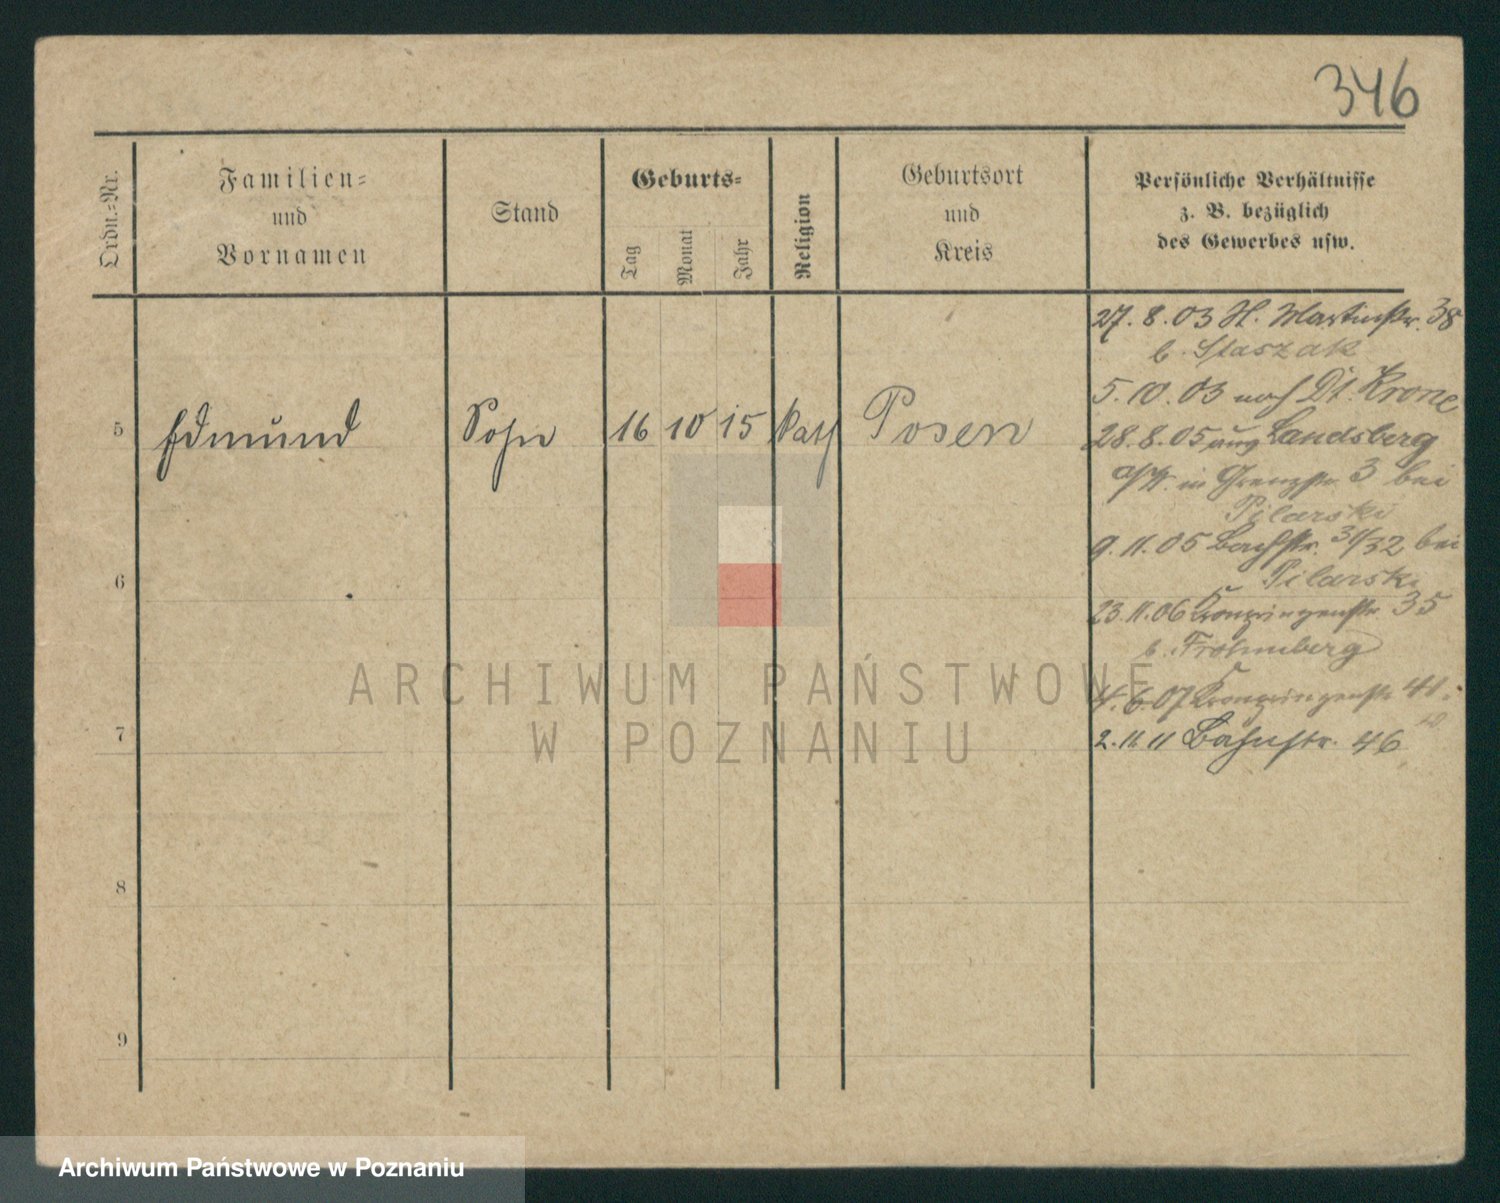 346
Ordn.-Nr.
Familien-
und
Vornamen
Stand
Geburts-
Tag
Monat
Jahr
Religion
Geburtsort
und
Kreis
Persönliche Verhältnisse
z. B. bezüglich
des Gewerbes usw.
27. 8. 03 St. Martinstr. 38
b. Staszak
5. 10. 03 nach Dt. Krone
5 Edmund Sohn 16 10 15 kath Posen
28. 8. 05 aus Landsberg
a/W. in Grenzstr. 3 bei
Pilarski
9. 11. 05 Bachstr. 31/32 bei
Pilarski
6
23. 11. 06 Kronprinzenstr. 35
b. Frohmberg
4. 6. 07 Kronprinzenstr. 41
7
2. 11 11 Bahnstr. 46
8
9
ARCHIWUM PAŃSTWOWE
W POZNANIU
Archiwum Państwowe w Poznaniu